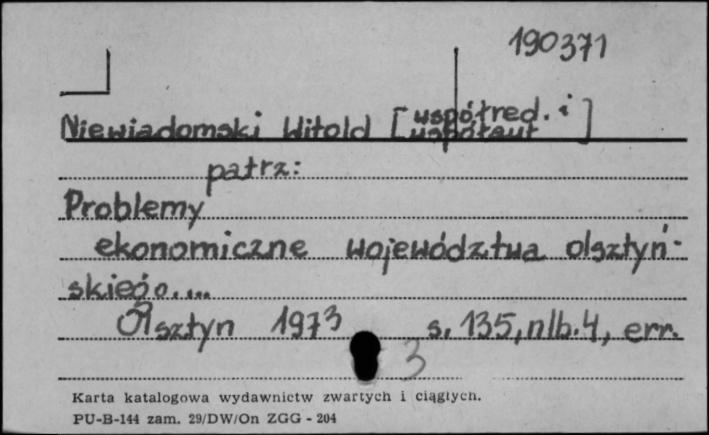 190371
Niewiadomski Witold [współred. i
współaut]
patrz:
Problemy
ekonomiczne województwa olsztyń-
skiego....
Olsztyn 1973 s. 135, nlb. 4, err.
3
Karta katalogowa wydawnictw zwartych i ciągłych.
PU-B-144 zam. 29/DW/On ZGG - 204